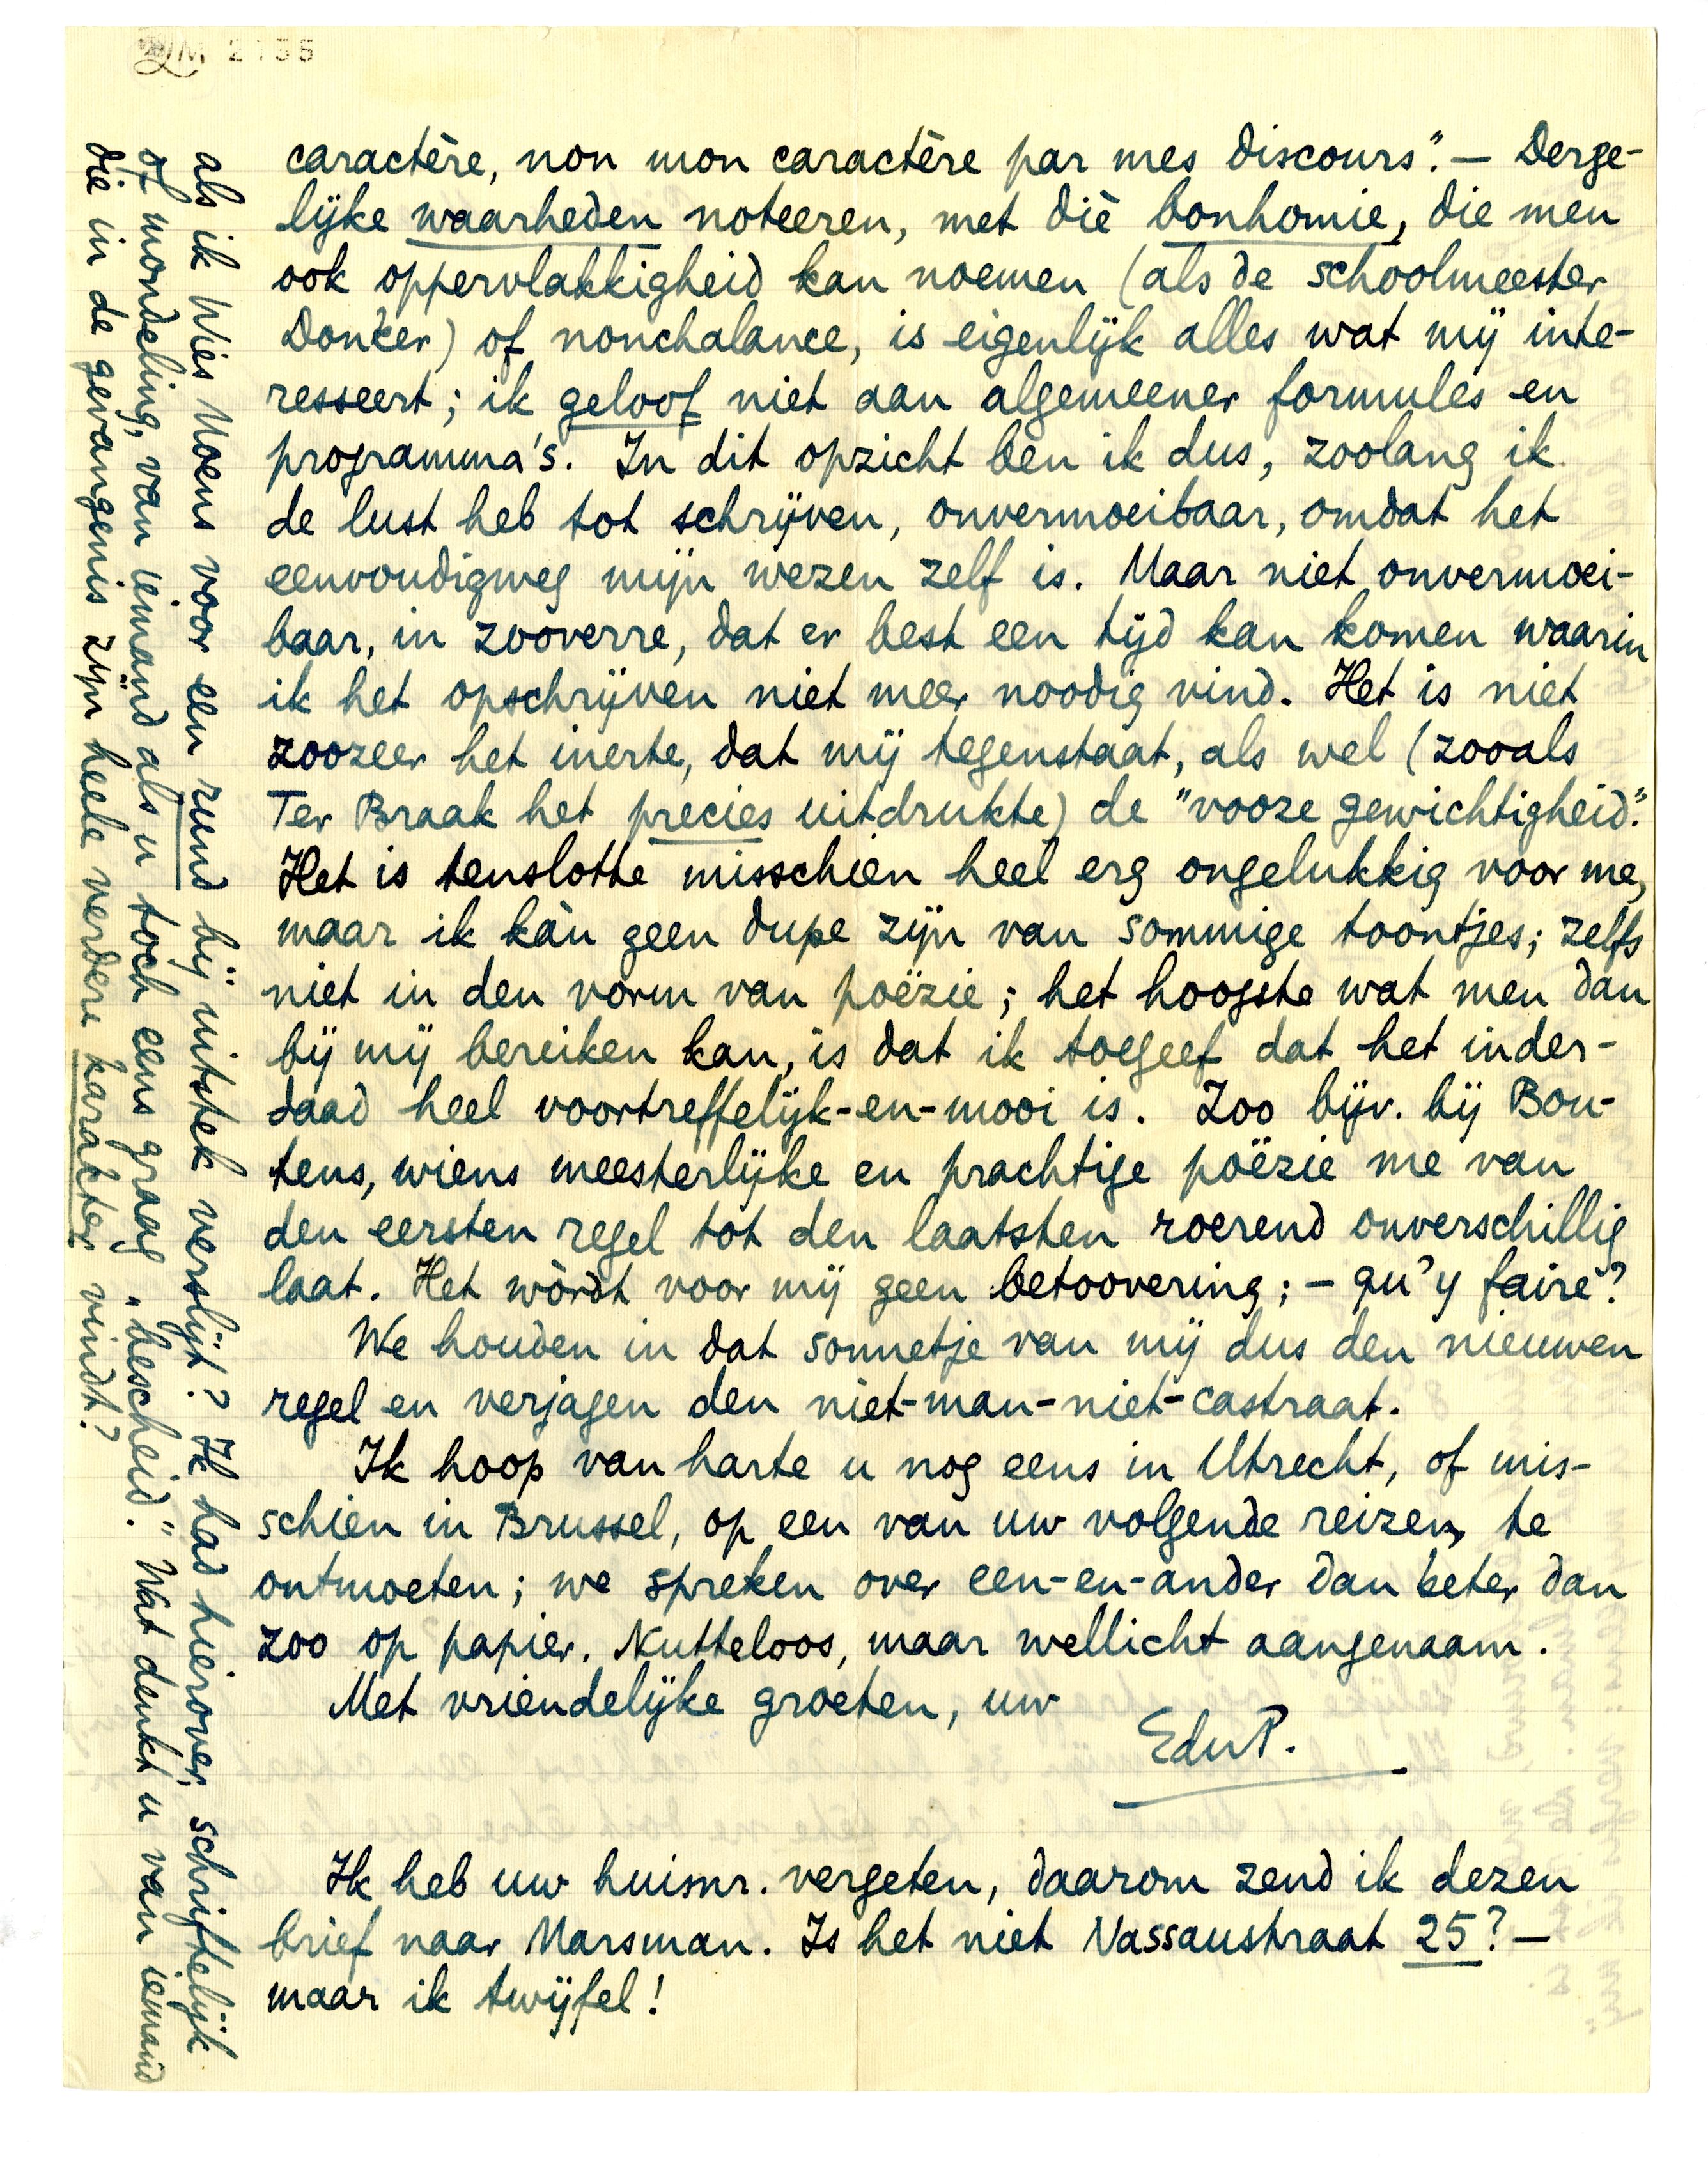 LM 2135
caractère, non mon caractère par mes discours". — Derge-
lijke waarheden noteeren, met diè bonhomie, die men
ook oppervlakkigheid kan noemen (als de schoolmeester
Doncker) of nonchalance, is eigenlijk alles wat mij inte-
resseert; ik geloof niet aan algemeener formules en
programma's. In dit opzicht ben ik dus, zoolang ik
de lust heb tot schrijven, onvermoeibaar, omdat het
eenvoudigweg mijn wezen zelf is. Maar niet onvermoei-
baar, in zooverre, dat er best een tijd kan komen waarin
ik het opschrijven niet meer noodig vind. Het is niet
zoozeer het inerte, dat mij tegenstaat, als wel (zooals
Ter Braak het precies uitdrukte) de "vooze gewichtigheid".
Het is tenslotte misschien heel erg ongelukkig voor me,
maar ik kàn geen dupe zijn van sommige toontjes; zelfs
niet in den vorm van poëzie; het hoogste wat men dan
bij mij bereiken kan, is dat ik toegeef dat het inder-
daad heel voortreffelijk-en-mooi is. Zoo bijv. bij Bou-
tens, wiens meesterlijke en prachtige poëzie me van
den eersten regel tot den laatsten roerend onverschillig
laat. Het wòrdt voor mij geen betoovering; — qu'y faire?
We houden in dat sonnetje van mij dus den nieuwen
regel en verjagen den niet-man-niet-castraat.
Ik hoop van harte u nog eens in Utrecht, of mis-
schien in Brussel, op een van uw volgende reizen, te
ontmoeten; we spreken over een-en-ander dan beter dan
zoo op papier. Nutteloos, maar wellicht aangenaam.
Met vriendelijke groeten, uw
EduP.
Ik heb uw huisnr. vergeten, daarom zend ik dezen
brief naar Marsman. Is het niet Nassaustraat 25? —
maar ik twijfel!
als ik Wies Moens voor een rund bij uitstek verslijt? Ik had hierover, schriftelijk
of mondeling, van iemand als u toch eens graag "bescheid." Wat denkt u van iemand
die in de gevangenis zijn heele verdere karakter vindt?